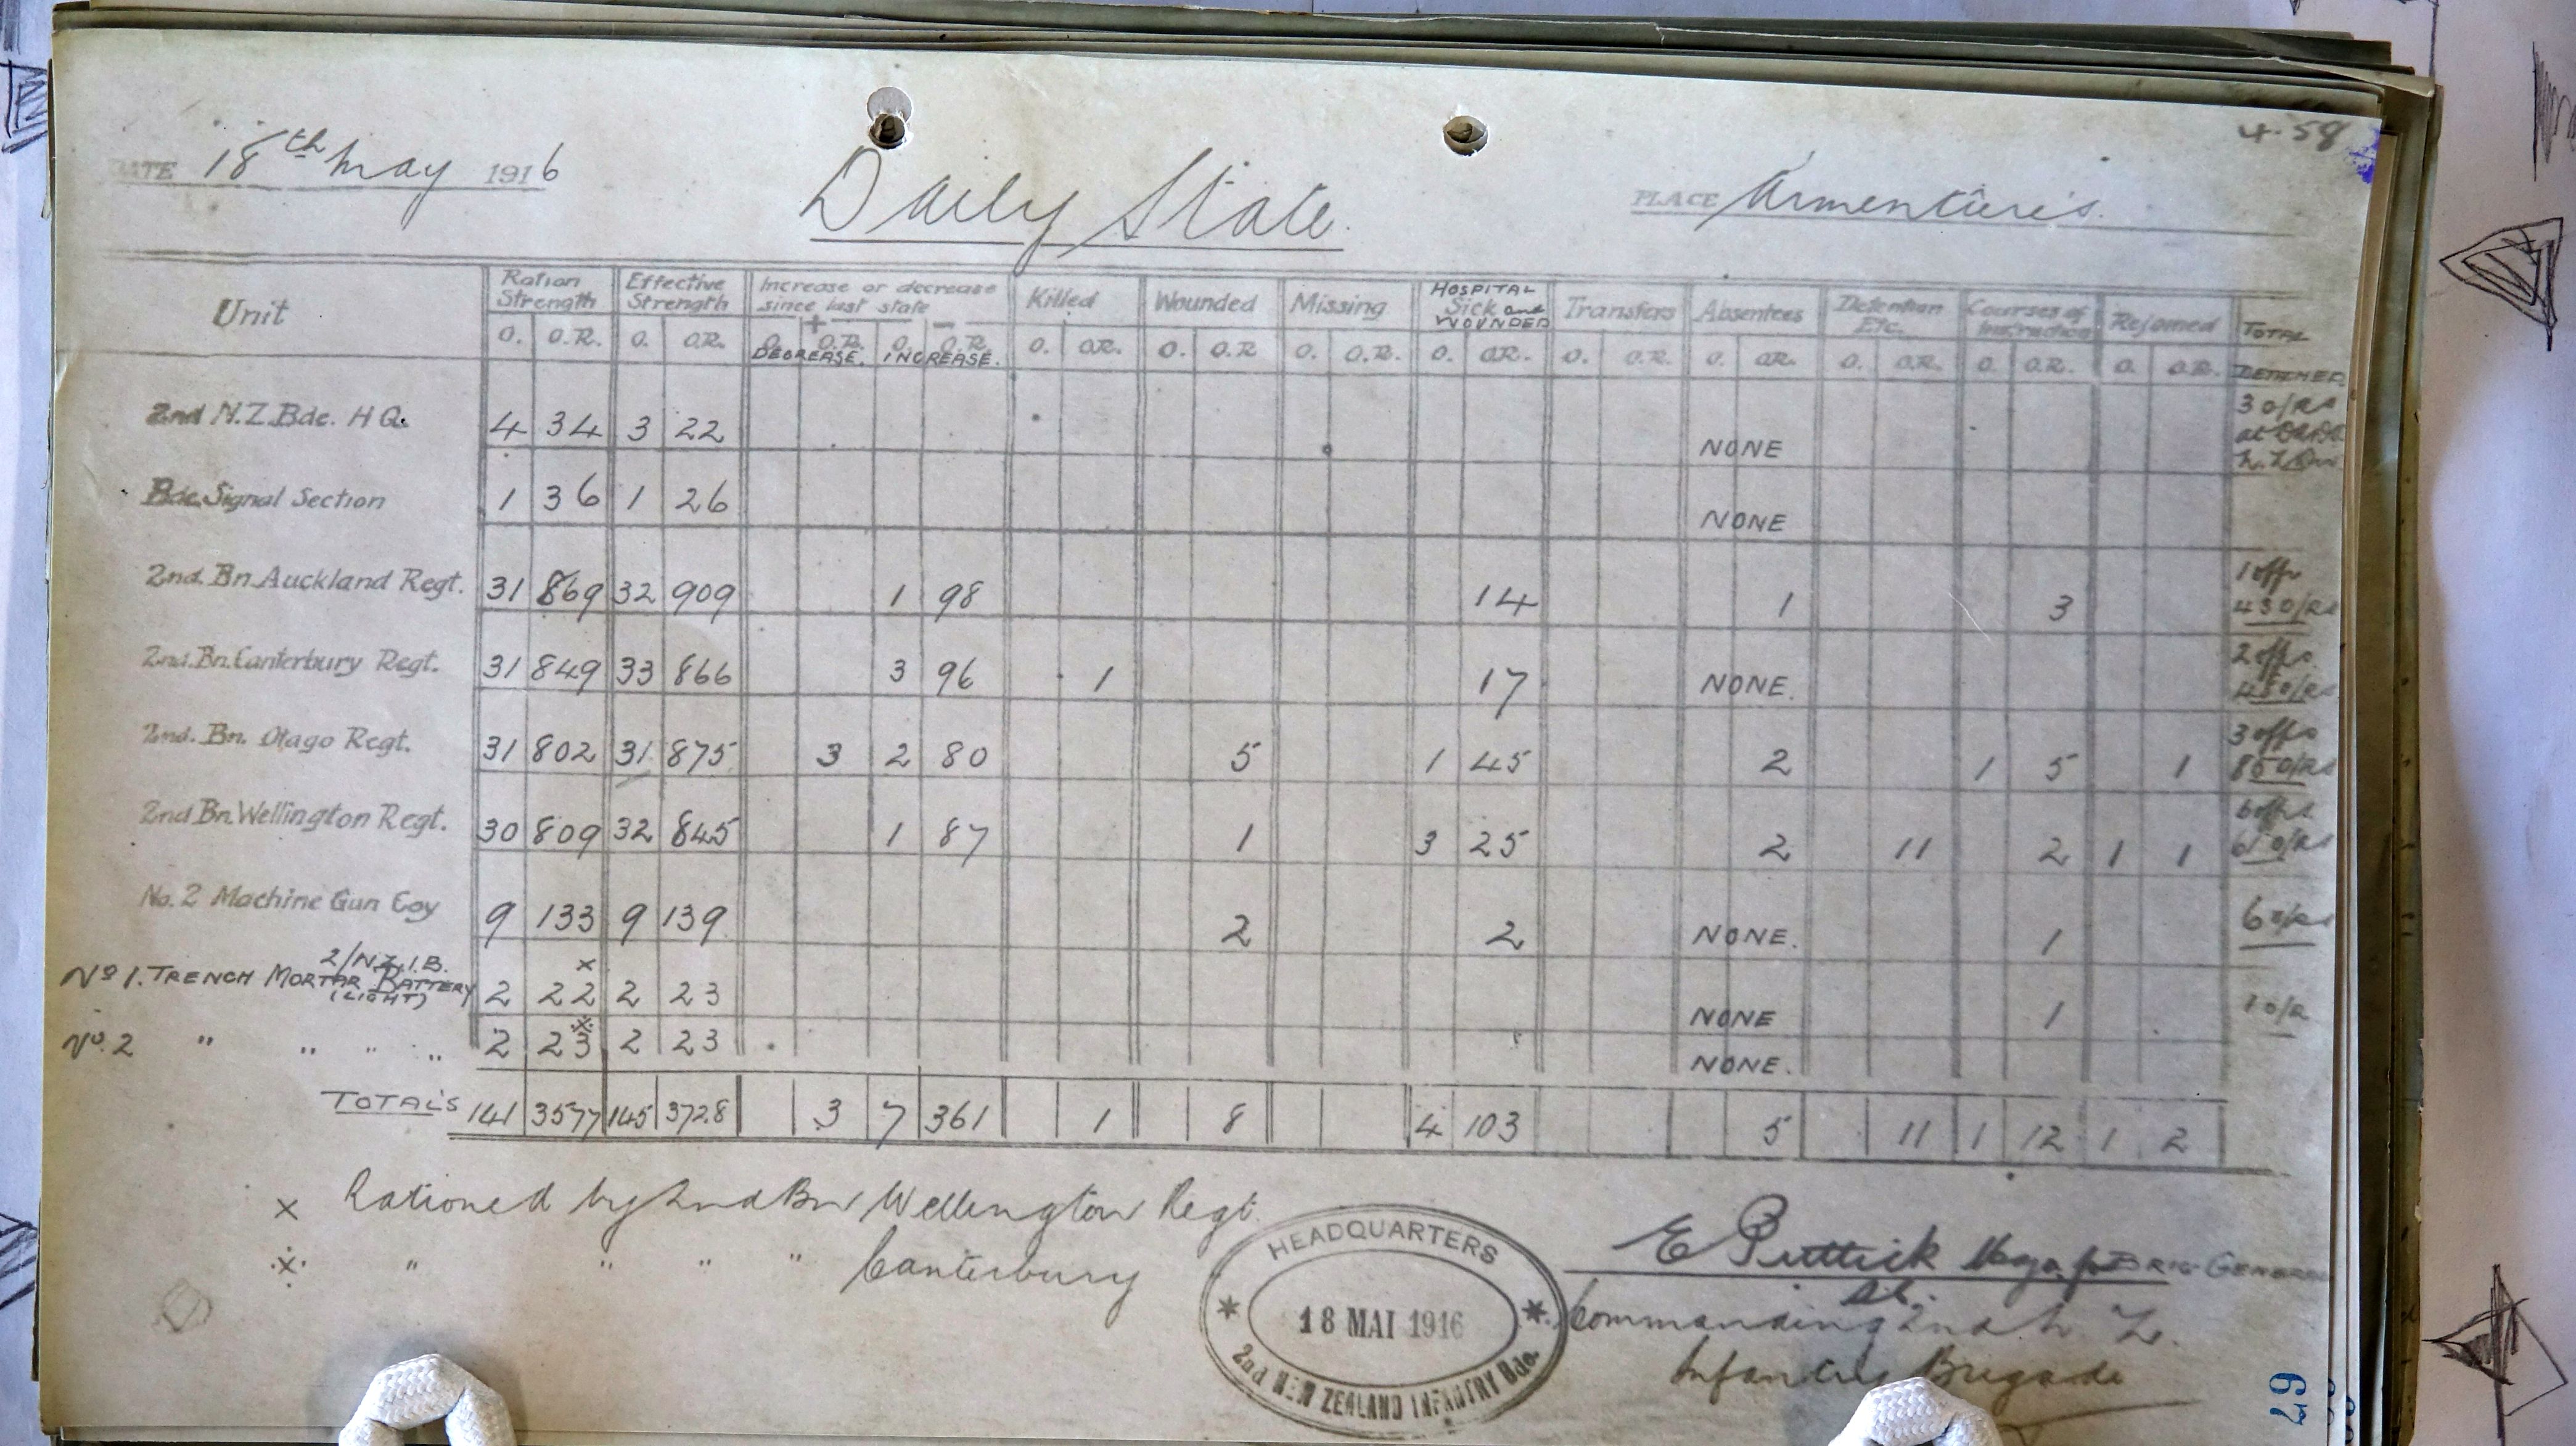 4.58
DATE 18th May 1916 Daily State. PLACE Armentieres.
Unit Ration Strength Effective Strength Increase or decrease since last state Killed Wounded Missing HOSPITAL Sick and WOUNDED Transfers Absentees Detention Etc. Courses of Instruction Rejoined TOTAL DETACHED
+ –
O. O.R. O. O.R. O. O.R. O. O.R. O. O.R. O. O.R O. O.R. O. O.R. O. O.R. O. O.R. O. O.R. O. O.R. O. O.R.
DECREASE. INCREASE.
2nd N.Z. Bde. H Q. 4 34 3 22 NONE 3 O/Rs at
Bde. Signal Section 1 36 1 26 NONE
2nd. Bn. Auckland Regt. 31 869 32 909 1 98 14 1 3 1 offr 43 O/Rs
2nd. Bn. Canterbury Regt. 31 849 33 866 3 96 1 17 NONE. 2 offs O/Rs
2nd. Bn. Otago Regt. 31 802 31 875 3 2 80 5 1 45 2 1 5 1 3 offs 85 O/Rs
2nd Bn. Wellington Regt. 30 809 32 845 1 87 1 3 25 2 11 2 1 1 6 offrs 61 O/Rs
No. 2 Machine Gun Coy 9 133 9 139 2 2 NONE. 1 6 O/Rs
2/N.Z.I.B.
No 1. TRENCH MORTAR BATTERY (LIGHT) 2 22 x 2 23 NONE 1 1 O/R
No. 2 " " " " 2 23 ※ 2 23 NONE.
TOTALS 141 3577 145 3728 3 7 361 1 8 4 103 5 11 1 12 1 2
x Rationed by 2nd Bn Wellington Regt.
※ " " " " Canterbury
HEADQUARTERS
18 MAI 1916
2nd NEW ZEALAND INFANTRY Bde.
E Puttick Major for BRIG-GENERAL
Commanding 2nd N. Z.
Infantry Brigade
67